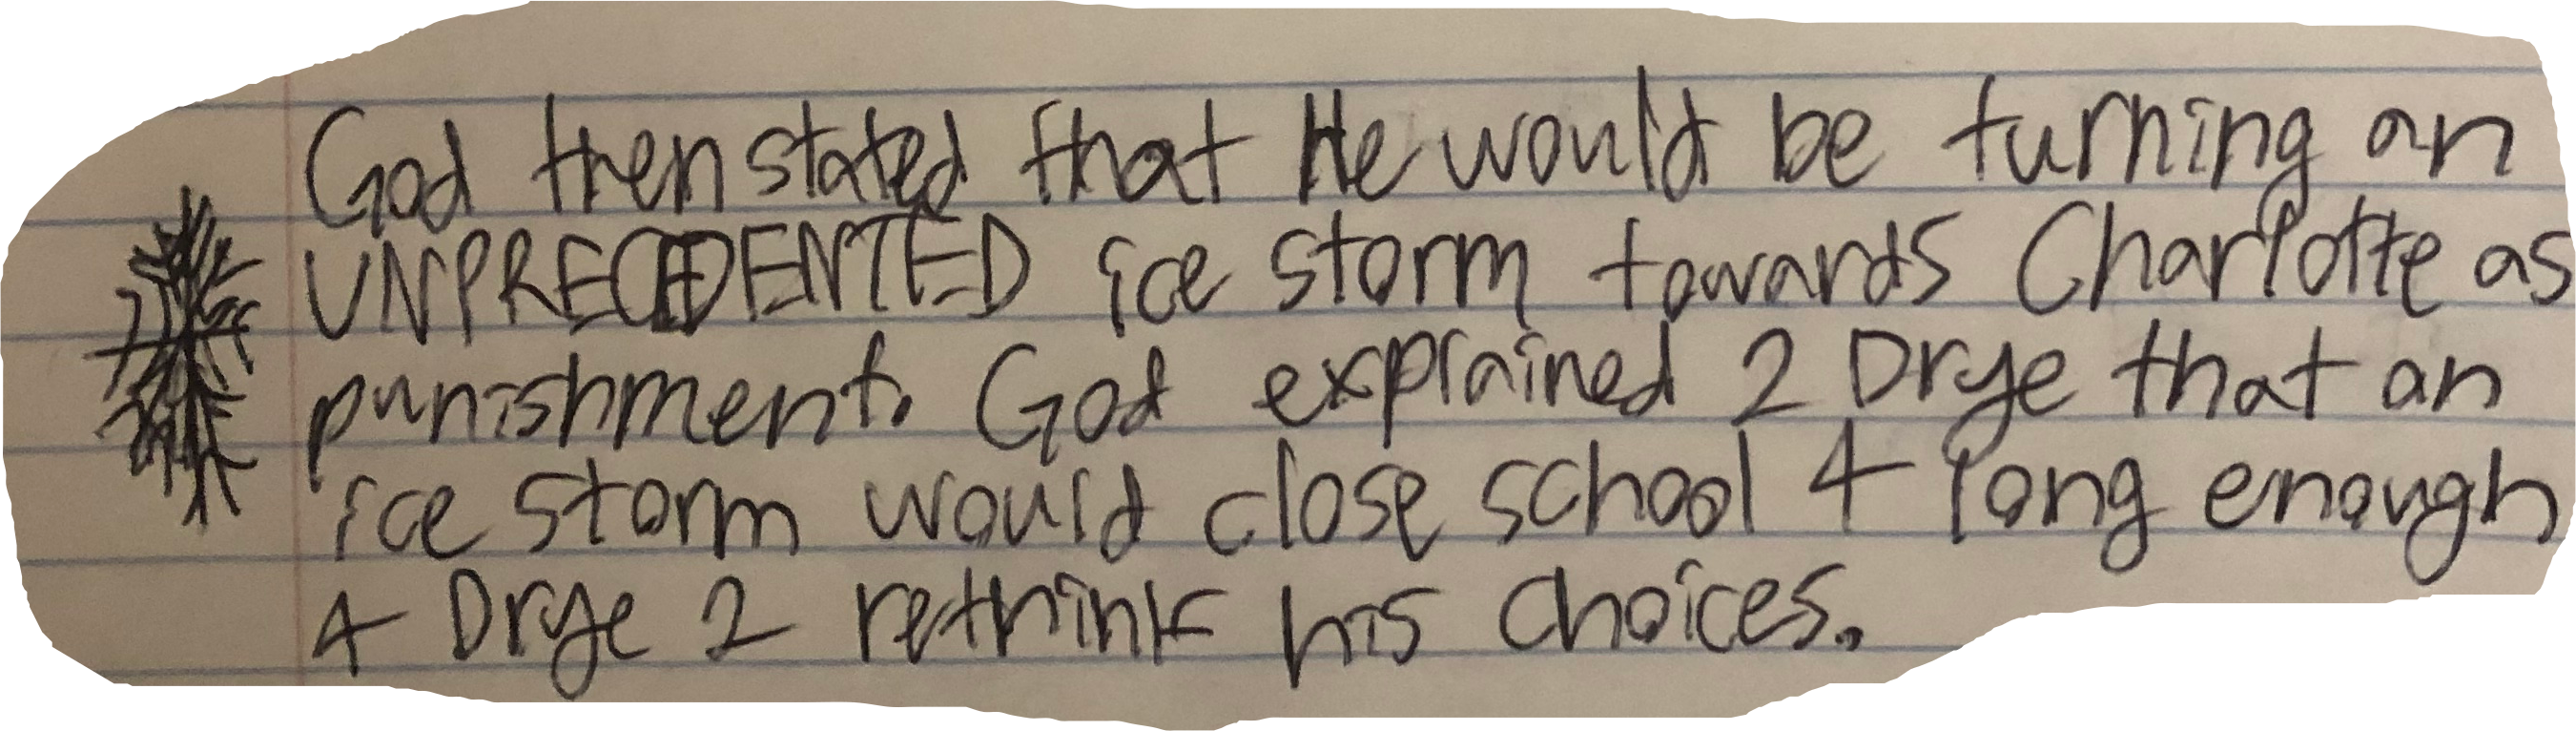 God then stated that He would be turning an
UNPRECEDENTED ice storm towards Charlotte as
punishment. God explained 2 Drye that an
ice storm would close school 4 long enough
4 Drye 2 rethink his choices.